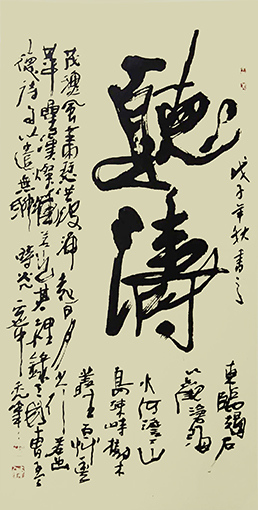 聽濤
戊子年秋書
東臨碣石
以觀滄海
水何澹澹山
島竦峙樹木
叢生百草豐
茂秋風蕭瑟洪波涌起日月之行若出
其中星漢燦爛若出其裡錄曹孟
德詩句以遣無聊時光